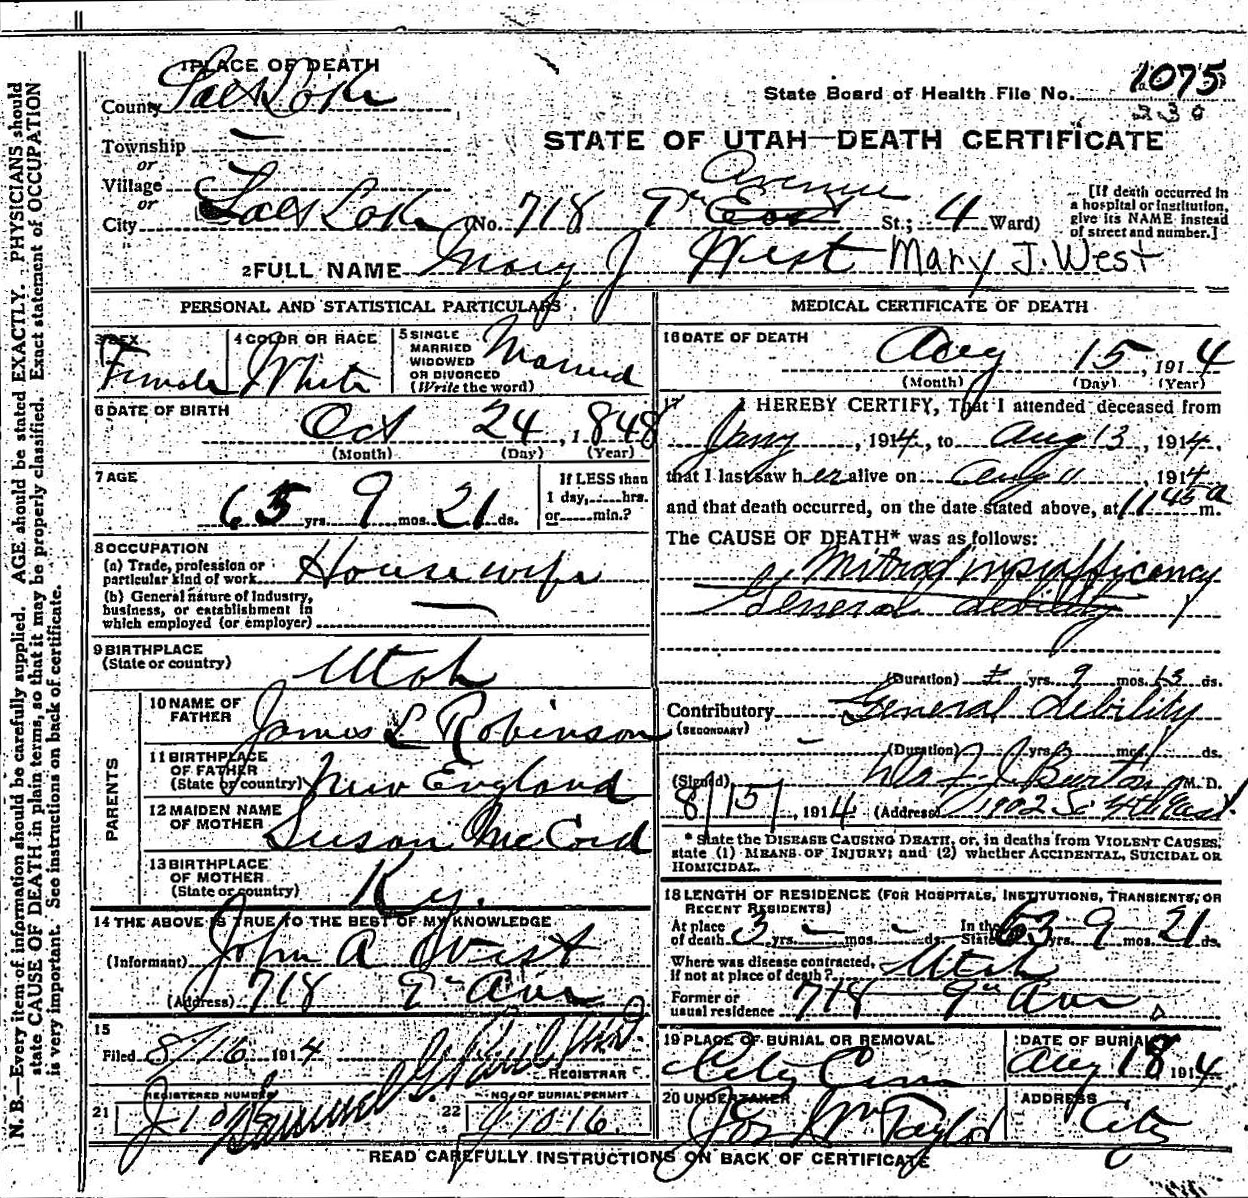 1 PLACE OF DEATH
County Salt Lake
State Board of Health File No. 1075
230
STATE OF UTAH—DEATH CERTIFICATE
Township —
or
Village
or
City Salt Lake (No. 718 9th East Avenue St.; 4 Ward)
[If death occurred in a hospital or institution, give its NAME instead of street and number.]
2 FULL NAME Mary J West Mary J. West
PERSONAL AND STATISTICAL PARTICULARS
3 SEX Female
4 COLOR OR RACE White
5 SINGLE MARRIED WIDOWED OR DIVORCED (Write the word) Married
6 DATE OF BIRTH Oct 24, 1848
(Month) (Day) (Year)
7 AGE 65 yrs. 9 mos. 21 ds.
If LESS than 1 day, hrs. or min.?
8 OCCUPATION
(a) Trade, profession or particular kind of work Housewife
(b) General nature of Industry, business, or establishment in which employed (or employer) —
9 BIRTHPLACE (State or country) Utah
PARENTS
10 NAME OF FATHER James L Robinson
11 BIRTHPLACE OF FATHER (State or country) New England
12 MAIDEN NAME OF MOTHER Susan McCord
13 BIRTHPLACE OF MOTHER (State or country) Ky.
14 THE ABOVE IS TRUE TO THE BEST OF MY KNOWLEDGE
(Informant) John A West
(Address) 718 9th Ave
15
Filed 8/16 1914
REGISTRAR
REGISTERED NUMBER
21
22 NO. OF BURIAL PERMIT
J 1016
MEDICAL CERTIFICATE OF DEATH
16 DATE OF DEATH Aug 15, 1914
(Month) (Day) (Year)
17 I HEREBY CERTIFY, That I attended deceased from
Jany, 1914, to Aug 13, 1914,
that I last saw her alive on Aug 11, 1914
and that death occurred, on the date stated above, at 1145 a m.
The CAUSE OF DEATH* was as follows:
Mitral insufficiency
General debility
(Duration) yrs. 9 mos. 13 ds.
Contributory General debility
(SECONDARY)
(Duration) yrs. mos. ds.
(Signed) Dr F J Burton M. D.
8/15, 1914 (Address) 1902 So 4th East
* State the DISEASE CAUSING DEATH, or, in deaths from VIOLENT CAUSES, state (1) MEANS OF INJURY; and (2) whether ACCIDENTAL, SUICIDAL OR HOMICIDAL.
18 LENGTH OF RESIDENCE (FOR HOSPITALS, INSTITUTIONS, TRANSIENTS, OR RECENT RESIDENTS)
At place of death 3 yrs. — mos. — ds. In the State 63 yrs. 9 mos. 21 ds.
Where was disease contracted, if not at place of death? Utah
Former or usual residence 718 9th Ave
19 PLACE OF BURIAL OR REMOVAL City Cem
DATE OF BURIAL Aug 18 1914
20 UNDERTAKER Jos Wm Taylor
ADDRESS City
READ CAREFULLY INSTRUCTIONS ON BACK OF CERTIFICATE
N. B.—Every item of information should be carefully supplied. AGE should be stated EXACTLY. PHYSICIANS should
state CAUSE OF DEATH in plain terms, so that it may be properly classified. Exact statement of OCCUPATION
is very important. See instructions on back of certificate.